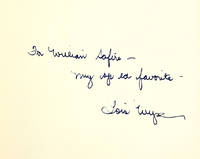 To William Safire —
my op ed favorite -
Lois Wyse